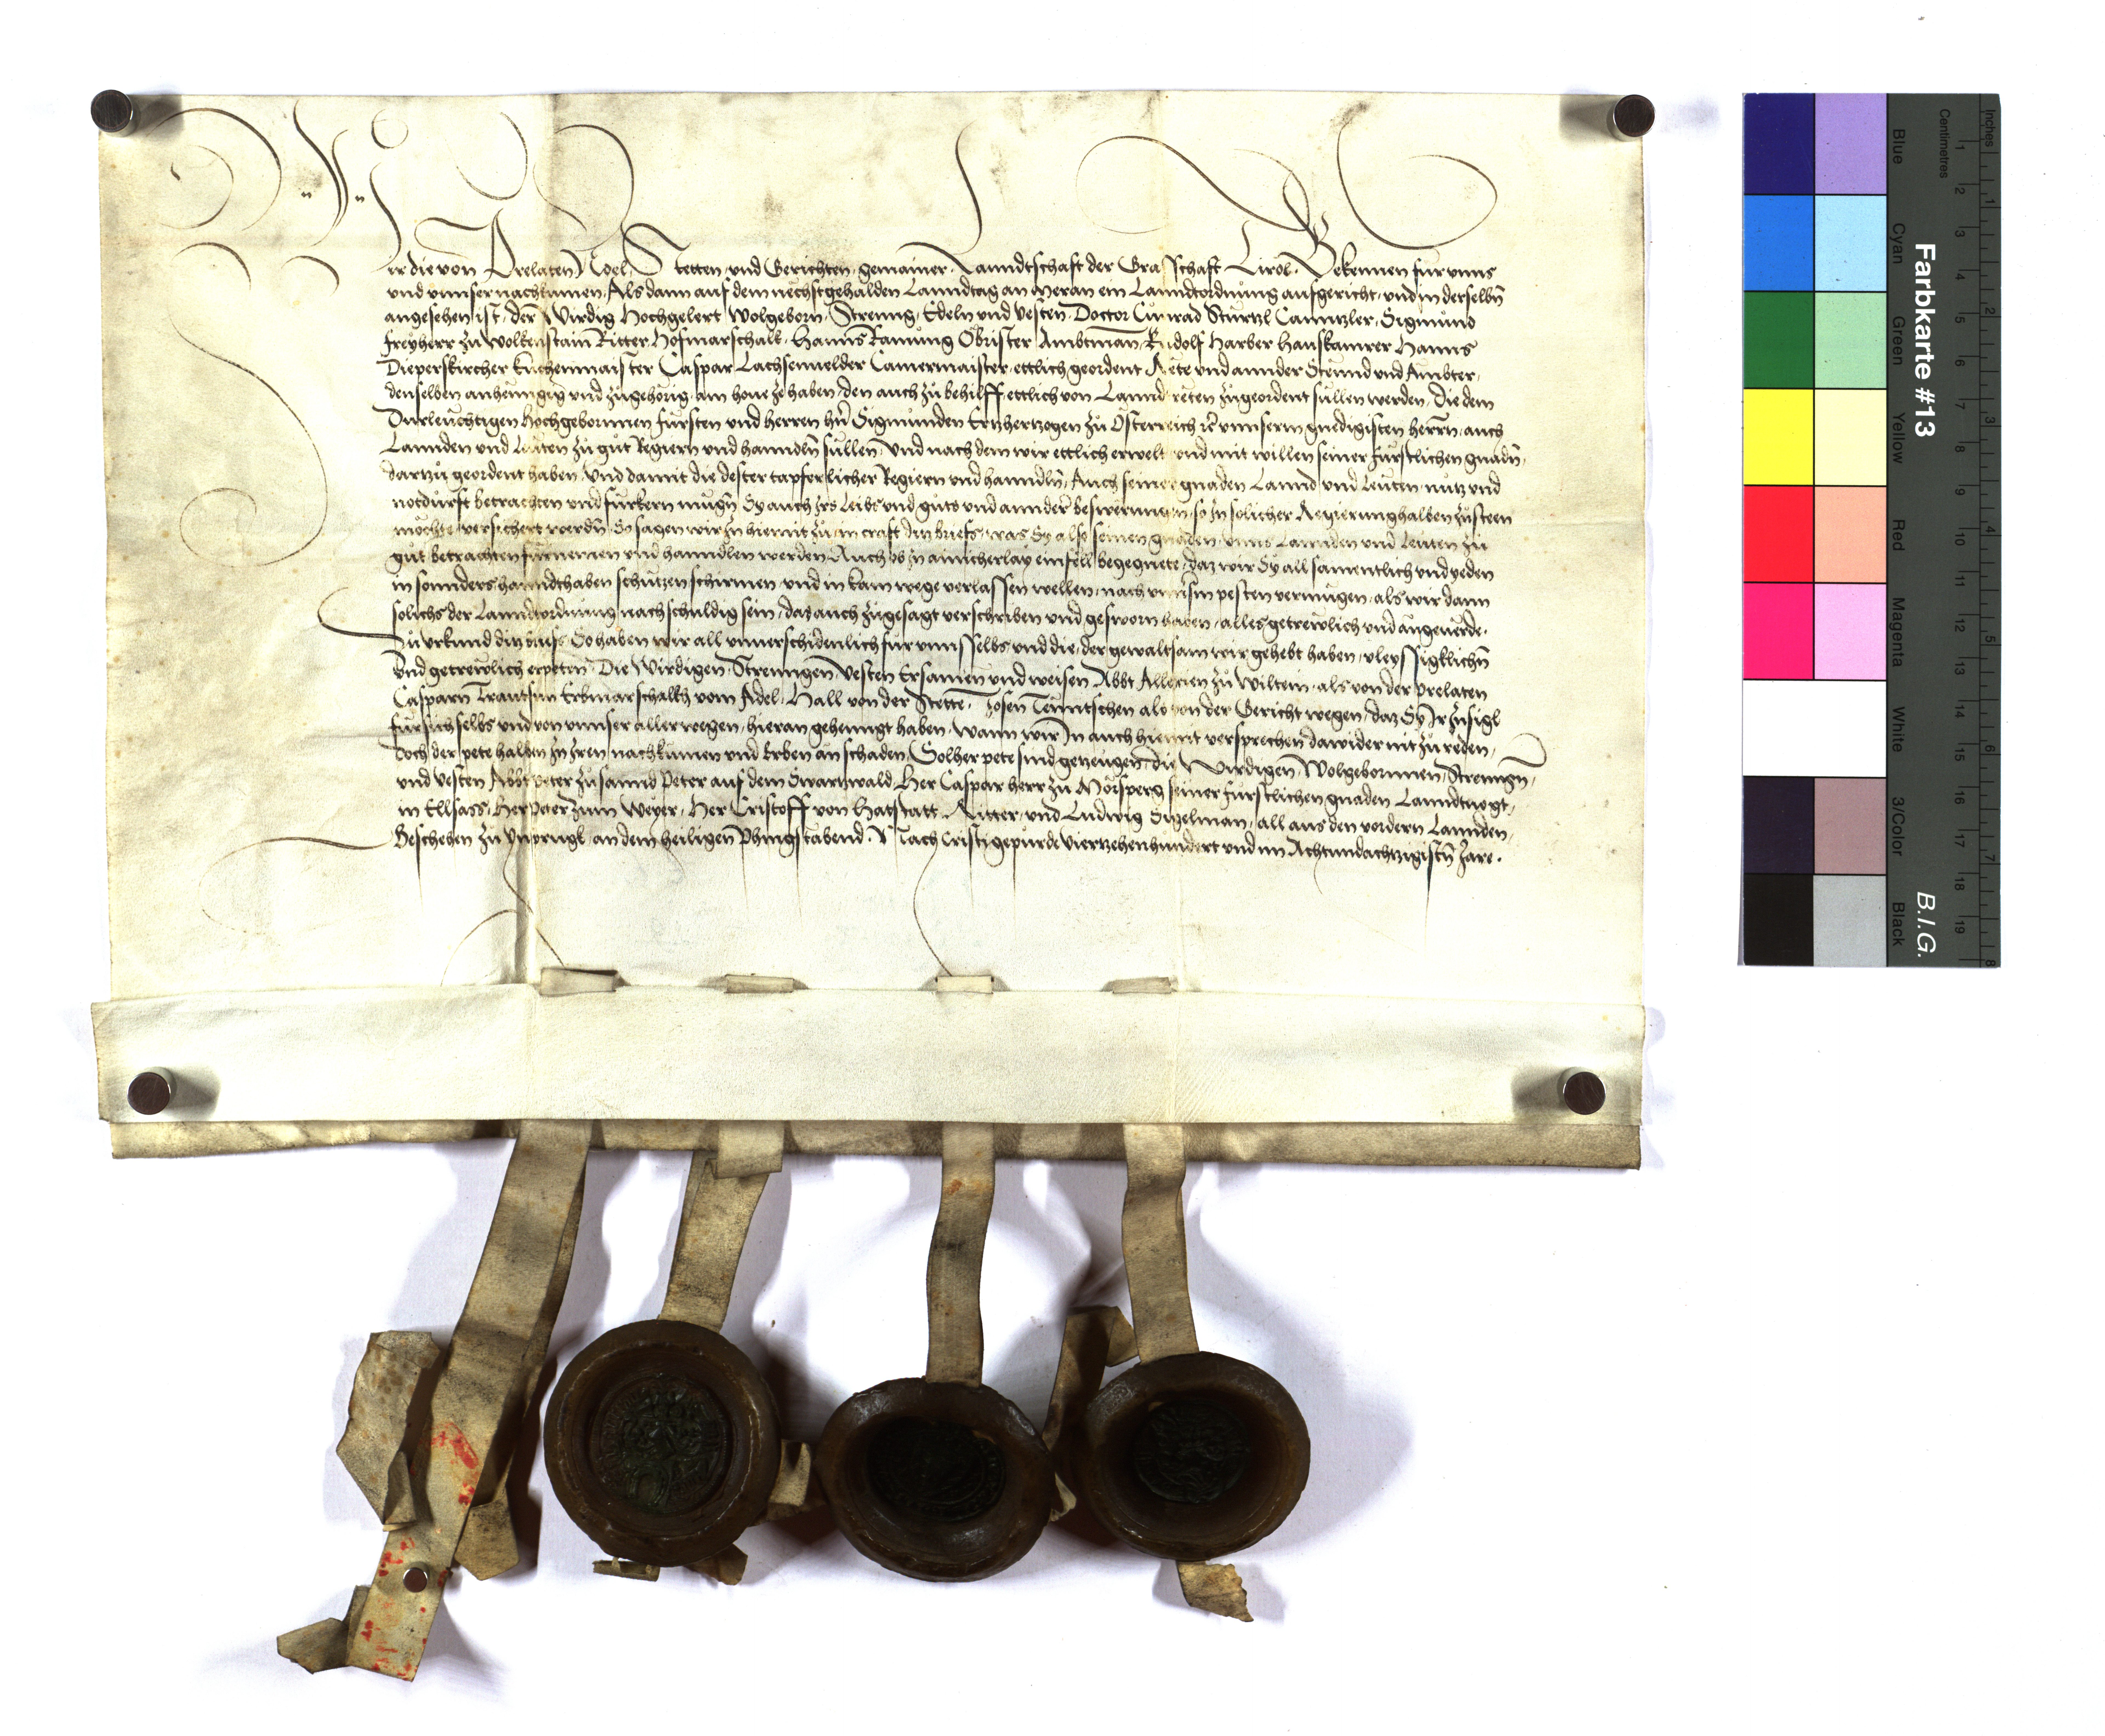 Wir die von Prelaten Adel Stetten und Gerichten gemainer Lanndtschaft der Grafschaft Tirol Bekennen für unns
und unnser nachkumen Als dann auf dem nechstgehalden Lanndtag an Meran ein Lanndtordnung aufgericht und in derselbn̄
angesehen ist, der Wirdig Hochgelert Wolgeborn Streng Edeln und Vesten Doctor Cunrad Stürtzl Canntzler Sigmund
freyherr zu Wolkenstain Ritter Hofmarschalk Hanns Ramung Obrister Ambtman Rudolf Harber Hauskamrer Hanns
Dieperskircher kuchenmaister Caspar Lachsenuelder Camermaister ettlich geordent Rete und annder Stennd und Ambter
denselben anhenngig und zugehorig am houe ze haben, den auch zu behilff ettlich von Lannd reten zugeordent sullen werden, die dem
Durleuchtigen Hochgebornnen fürsten und herren hn̄ Sigmunden Ertzhertzogen zu Österreich unnserm gnedigisten herrn auch
Lannden und Leuten zu gut Regiern und hanndln̄ sullen und nach dem wir ettlich erwelt und mit willen seiner fürstlichen gnadn̄
dartzu geordent haben und damit die dester tapferlicher Regiern und hanndln̄ Auch seiner gnaden Lannd und Leuten nutz und
notdurft betrachten und fürkern mugn̄ Sy auch Irs Leibs und guts und annder beswerungen so In solicher Regierung halben zusteen
möchte versichert werdn̄ So sagen wir In hiemit zu in craft ditz briefs was Sy also seinen gnaden unns Lannden und Leuten zu
gut betrachten furnemen und hanndlen werden Auch ob In ainicherlay einfell begegnete daz wir Sy all samentlich und yeden
in sonnders hanndthaben schutzen schirmen und in kain wege verlassen wellen nach unnserm pesten vermugen als wir dann
solichs der Lanndtordnung nach schuldig sein, das auch zugesagt verschriben und gesworn haben alles getrewlich und angeuerde.
Zu urkund ditz briefs So haben wir all unuerschidenlich für unns selbs und die der gewaltsam wir gehebt haben vleyssigklichn̄
und getrewlich erpeten Die Wirdigen Strenngen Vesten Ersamen und weisen Abbt Allexien zu Wiltein als von der prelaten
Casparn Trautsun Erbmarschalk vom Adel Hall von der Stette Josen Tenntschen als von der Gericht wegen daz Sy Ir Insigl
für sich selbs und von unnser aller wegen hieran gehenngt haben wann wir In auch hiemit versprechen dawider nit zu reden
doch der pete halben In Iren nachkumen und Erben an schaden Solher pete sind getzeugen die Wirdigen Wolgebornnen Strenngn̄
und vesten Abbt Peter zu sannd Peter auf dem Swartzwald Her Caspar herr zu Mörsperg seiner fürstlichen gnaden Lanndtuogt
in Ellsass Her Peter zum Weyer Her Cristoff von Hatstatt Ritter und Ludwig Sigelman all aus den vordern Lannden
Beschehen zu Ynsprugk an dem heiligen Phingstabend Nach Cristi gepurde Viertzehenhundert und im Achtundachtzigistn̄ Jare.
Farbkarte #13
B.I.G.
Blue Cyan Green Yellow Red Magenta White 3/Color Black
Centimetres 1 2 3 4 5 6 7 8 9 10 11 12 13 14 15 16 17 18 19
Inches 1 2 3 4 5 6 7 8